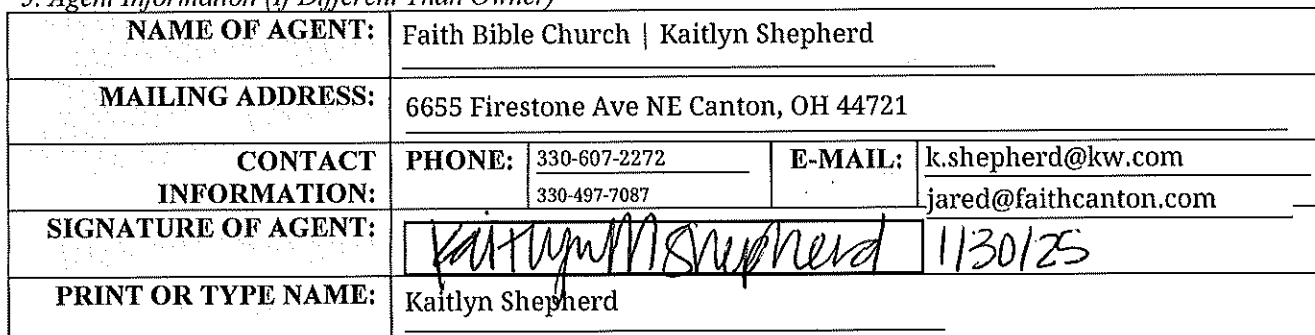 3. Agent Information (If Different Than Owner)
NAME OF AGENT: Faith Bible Church | Kaitlyn Shepherd
MAILING ADDRESS: 6655 Firestone Ave NE Canton, OH 44721
CONTACT INFORMATION: PHONE: 330-607-2272 E-MAIL: k.shepherd@kw.com
330-497-7087 jared@faithcanton.com
SIGNATURE OF AGENT: Kaitlyn M Shepherd 1/30/25
PRINT OR TYPE NAME: Kaitlyn Shepherd